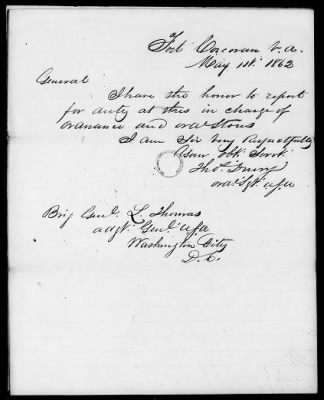 Fort Corcoran Va.
May 1st. 1862
General
I have the honor to report
for duty at this in charge of
ordnance and ord Stores
I am Sir Very Respectfully
Your Obt. Servt.
Thos.
ord Sgt. U.S.A
Brig Genl. L. Thomas
adgt. Genl. U.S.A
Washington City
D.C.